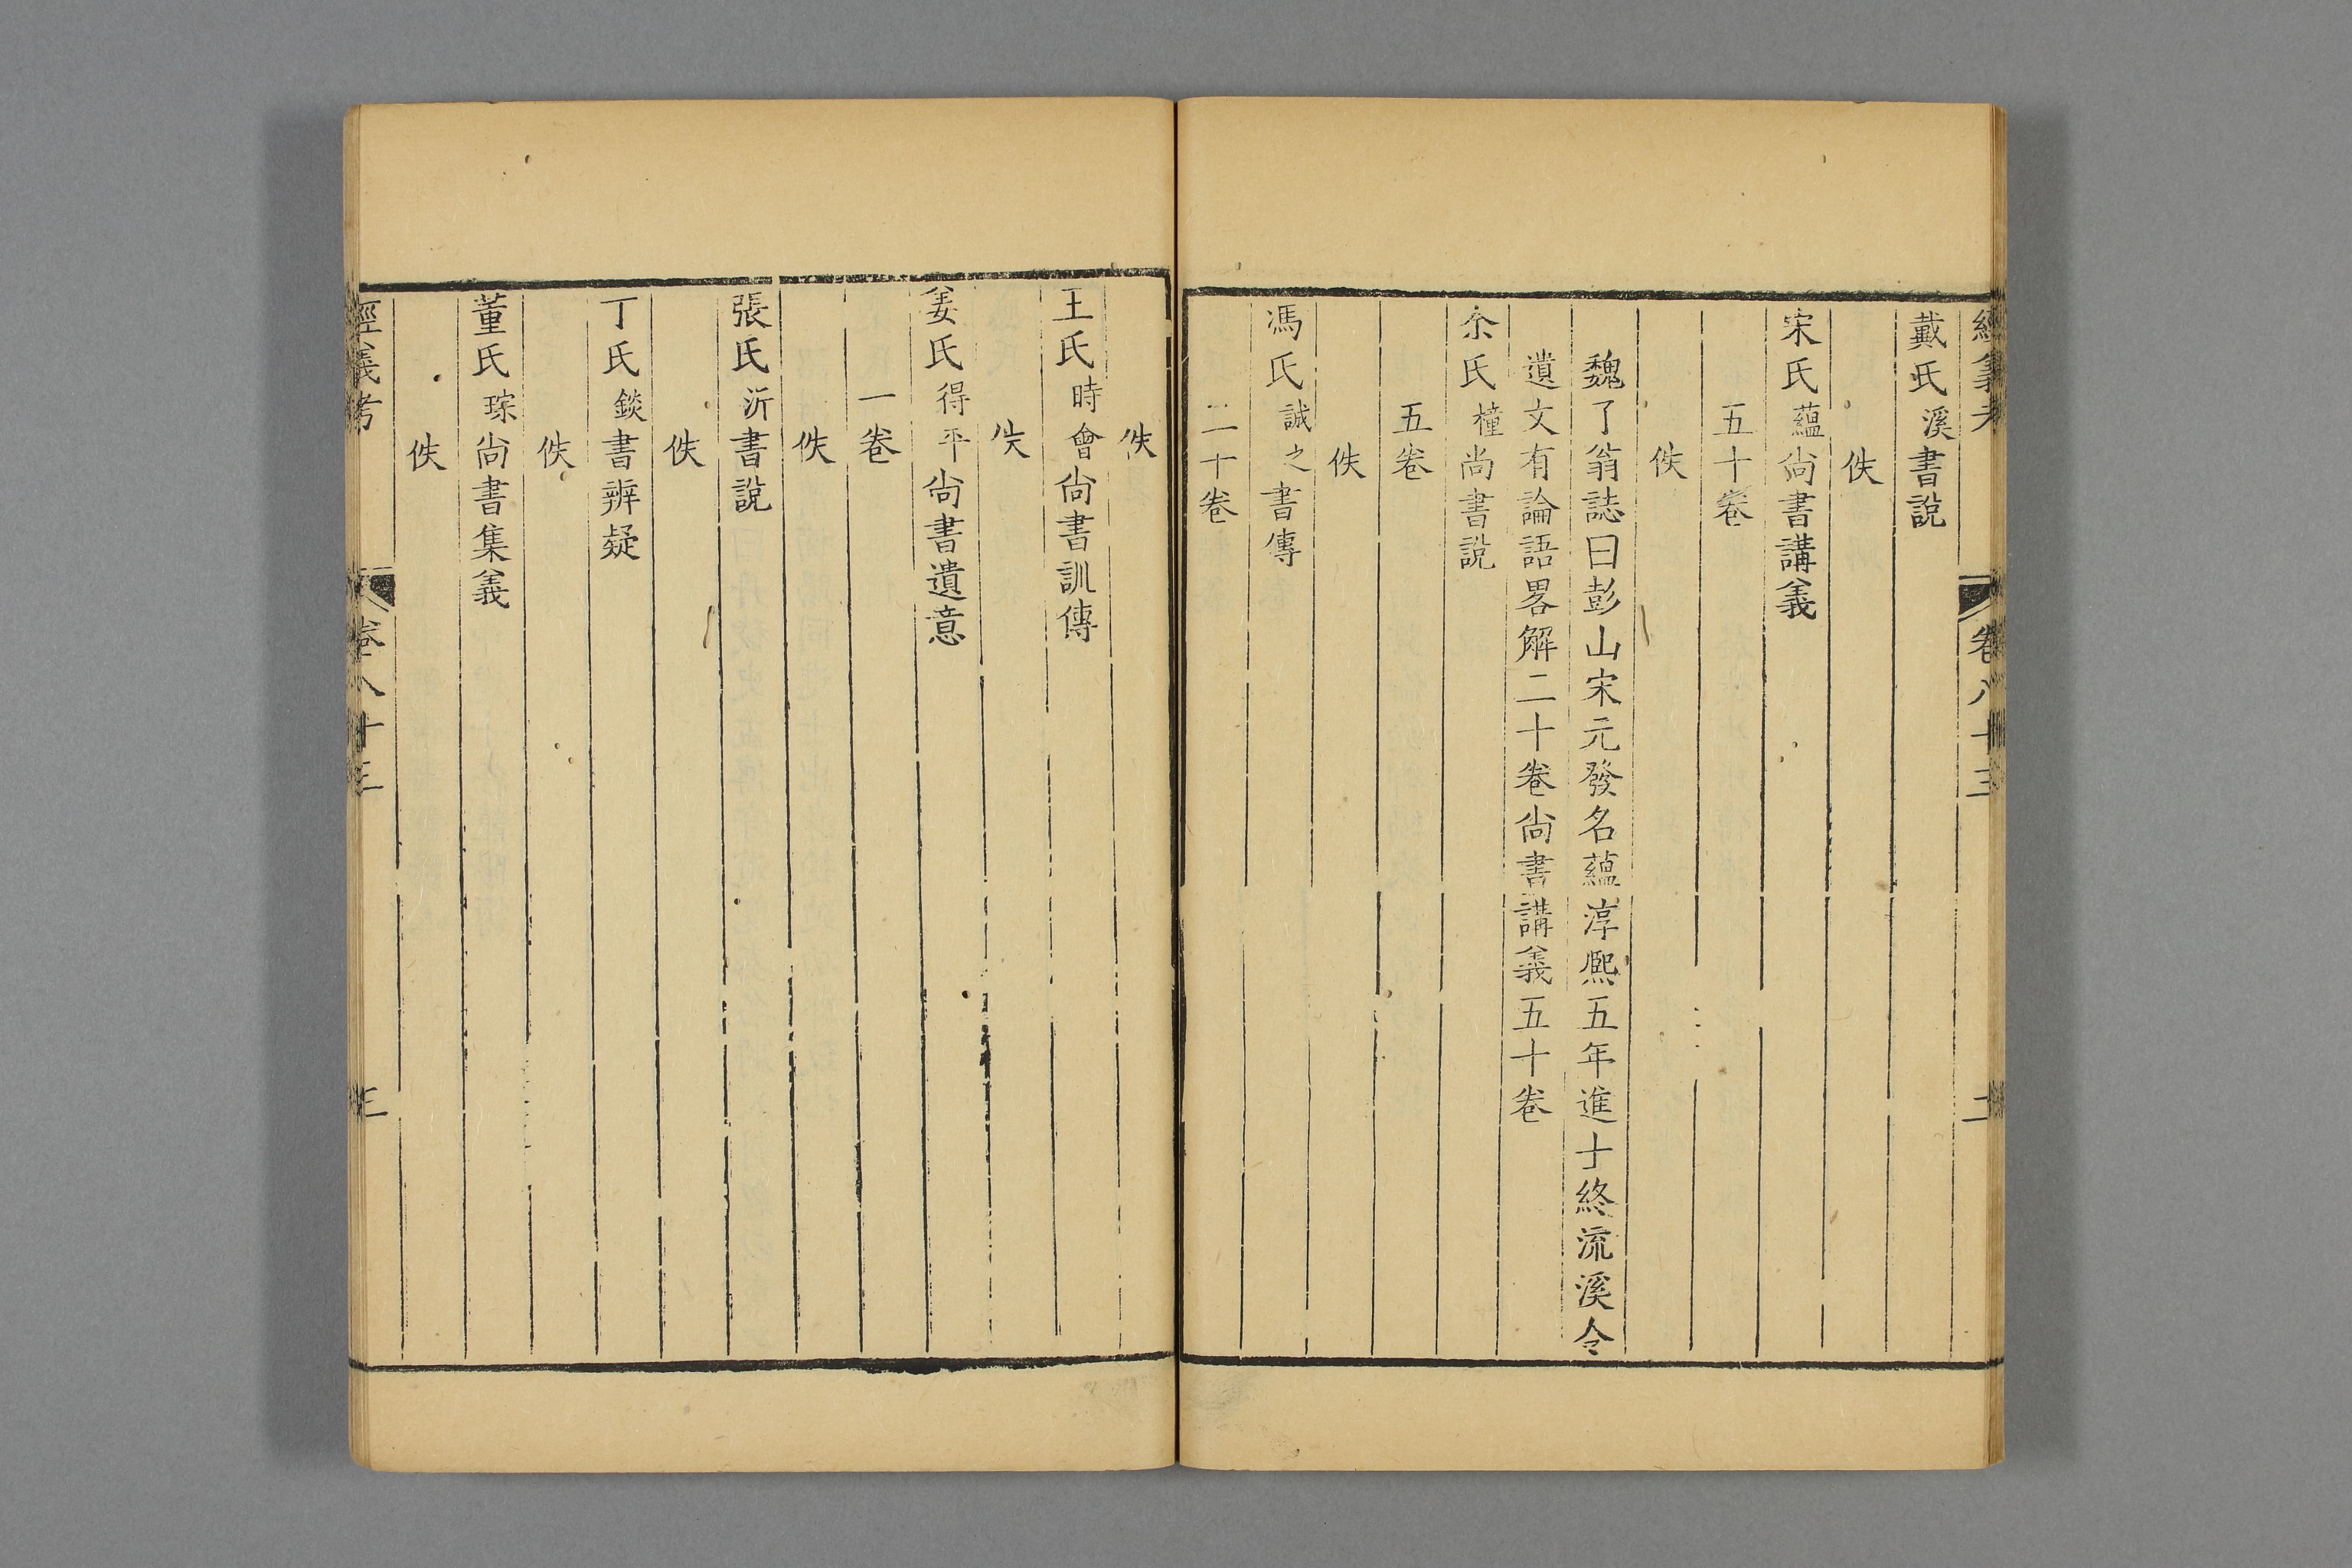 經義考 卷八十三 二
戴氏溪書說
佚
宋氏蘊尚書講義
五十卷
佚
魏了翁誌曰彭山宋元發名蘊淳熈五年進士終流溪令
遺文有論語畧解二十卷尚書講義五十卷
余氏橦尚書說
五卷
佚
馮氏誠之書傳
二十卷
佚
王氏時會尚書訓傳
佚
姜氏得平尚書遺意
一卷
佚
張氏沂書說
佚
丁氏錟書辨疑
佚
董氏琮尚書集義
佚
經義考 卷八十三 三